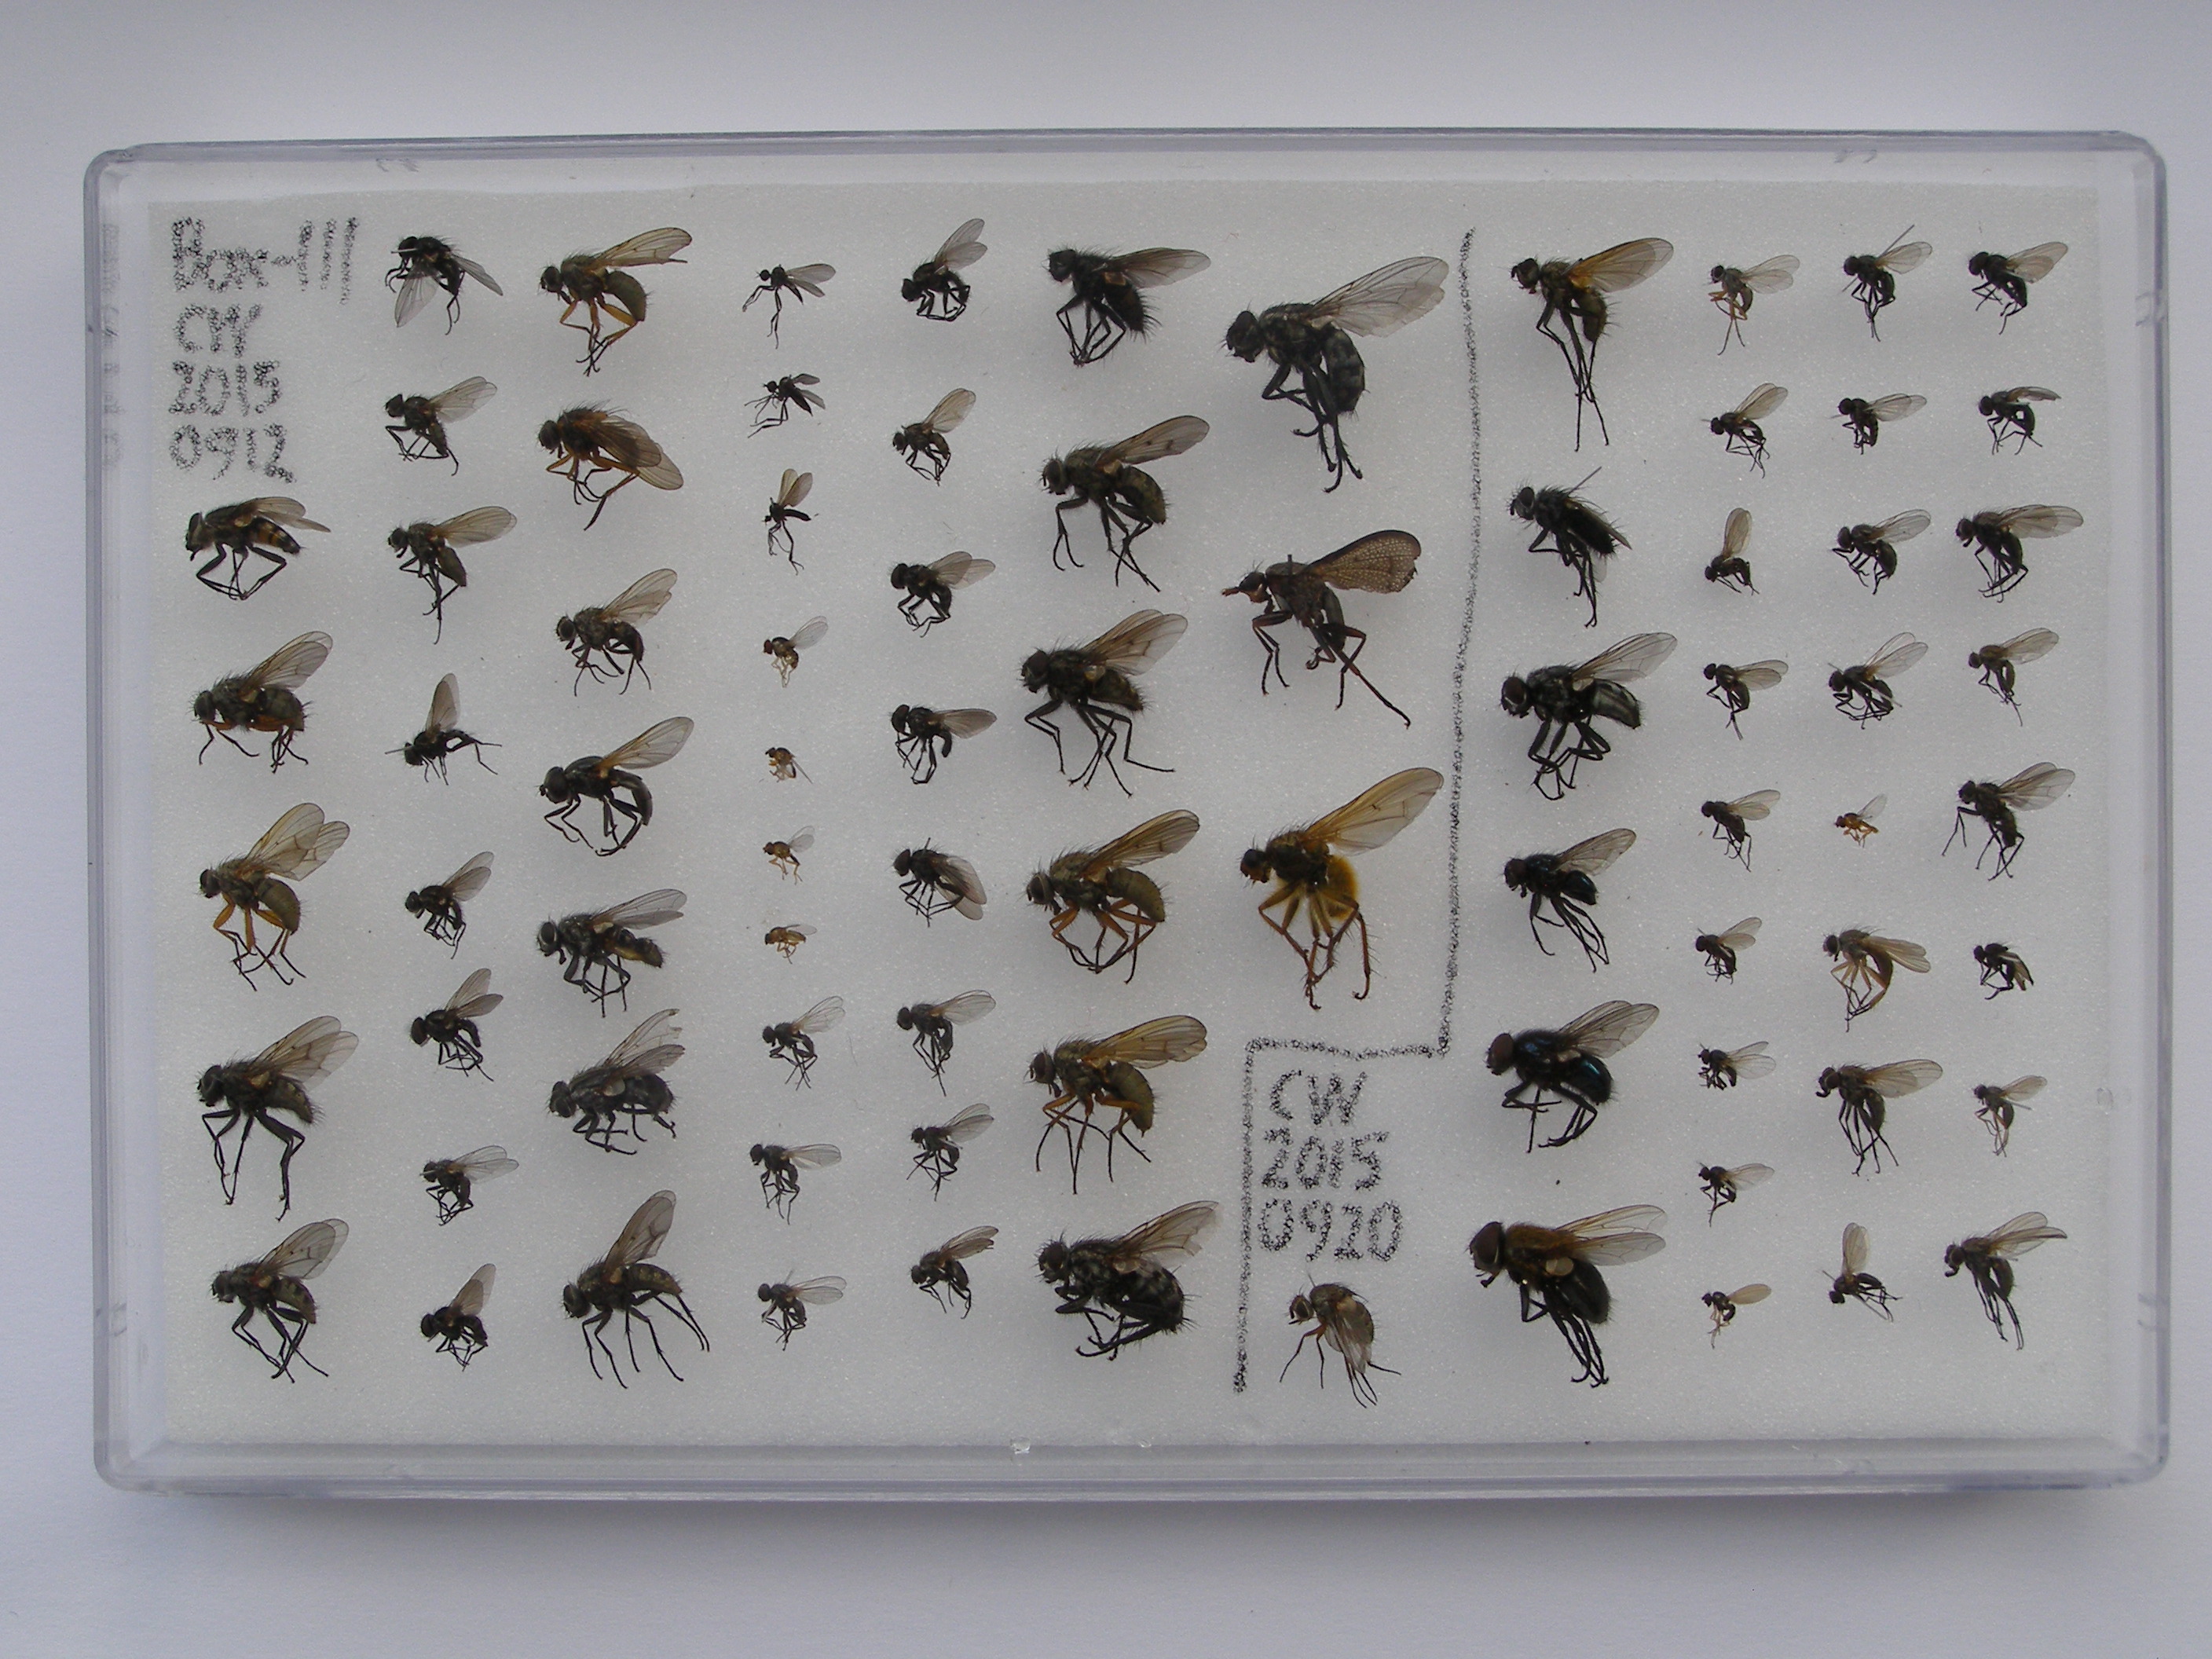 Box-III
CW
2015
0912
CW
2015
0920